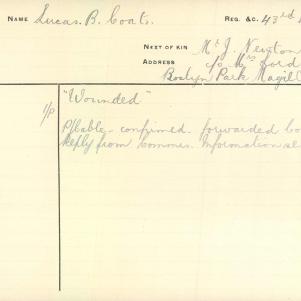 NAME Lucas. B. Coats. REG. &C. 43rd
NEXT OF KIN Mr J. Newton
ADDRESS c/o Mrs Gord
Roslyn Park Magill
1/P "Wounded"
P/Cable confirmed forwarded
Reply from Commrs. Information